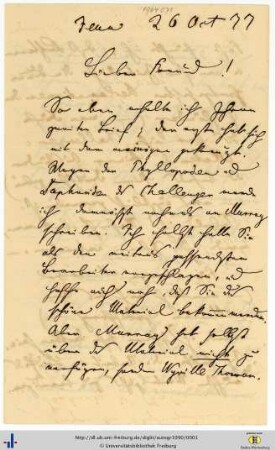 Jena 26 Oct 77
Lieber Freund!
So eben erhalte ich Ihren
zweiten Brief; der erste hat sich
mit dem meinigen gekreuzt.
Wegen der Phyllopoden und
des Challenger werde
ich demnächst nochmals an Murray
schreiben. Ich selbst halte Sie
als den weitaus passendsten
Bearbeiter vorgeschlagen, und
hoffe auch noch, daß Sie das
schöne Material bekommen werden.
Aber Murray hat selbst
über das Material nicht zu
verfügen, sond. Wyville Thomson.
http://dl.ub.uni-freiburg.de/diglit/autogr1090/0001
© Universitätsbibliothek Freiburg